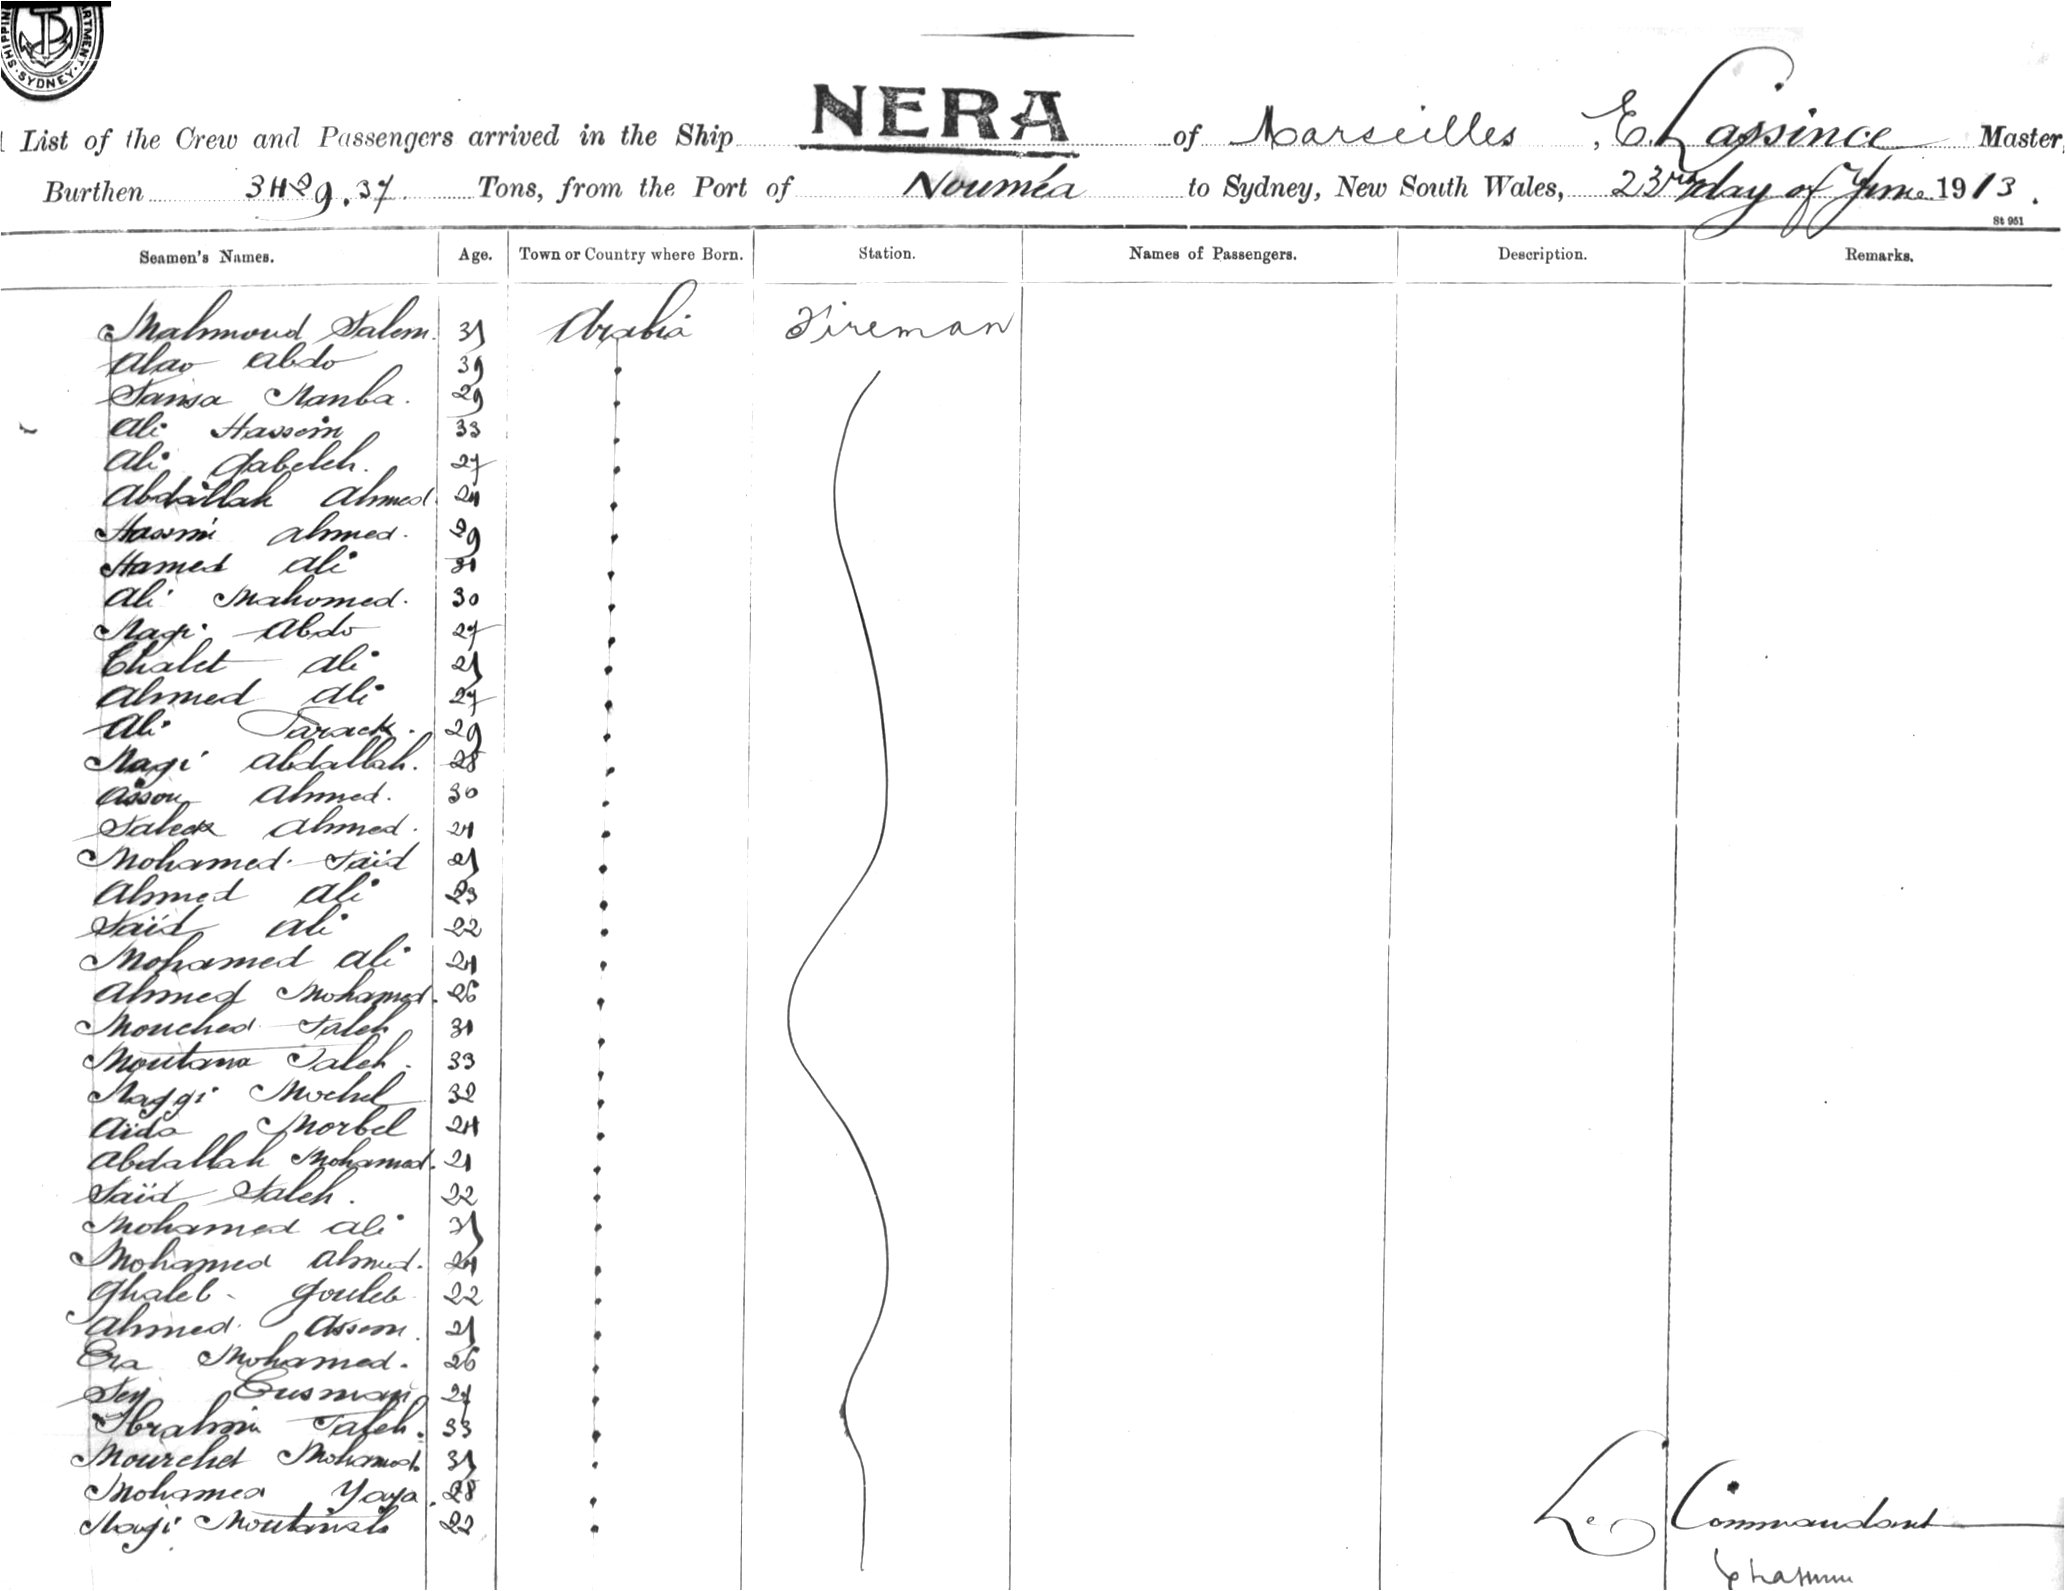 SHIPPING DEPARTMENT · SYDNEY ·
List of the Crew and Passengers arrived in the Ship NERA of Marseilles, E. Lassince Master,
Burthen 3429.37 Tons, from the Port of Nouméa to Sydney, New South Wales, 23rd day of June 1913.
St 951
Seamen's Names. Age. Town or Country where Born. Station. Names of Passengers. Description. Remarks.
Mahmoud Salem. Arabia Fireman
Abdo 39
29
Ali Hassein 33
Ali Gabeleh. 27
Abdallah Ahmed 24
Hassni Ahmed. 29
Hamed Ali 31
Ali Mahomed. 30
Nagi Abdo 27
Chalet Ali
Ahmed Ali 27
Ali Sarack. 29
Nagi Abdallah. 28
Assou Ahmed. 30
Saleck Ahmed.
Mohamed Saïd
Ahmed Ali 23
Saïd Ali 22
Mohamed Ali 24
Ahmed Mohamed. 26
Mouched Saleh 31
Moutana Saleh. 33
Naggi Mochel 32
Aïda Morbel 24
Abdallah Mohamed. 21
Saïd Saleh. 22
Mohamed Ali
Mohamed Ahmed. 24
Ghaleb Gouleb 22
Ahmed. Assem.
Mohamed. 26
Cusman
Ibrahim Saleh. 33
Mourched Mohamed
Mohamed Yaya. 28
Nagi Moutanah 22
Le Commandant